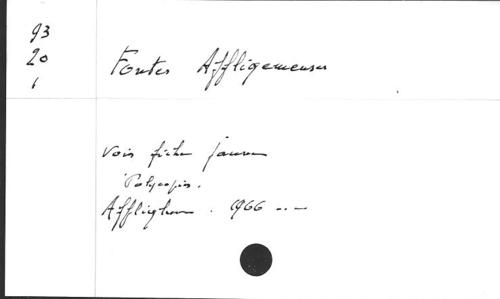 93
20
1
Fontes Affligemenses
Voir fiche jaune
Polycopié.
Afflighem . 1966 ---